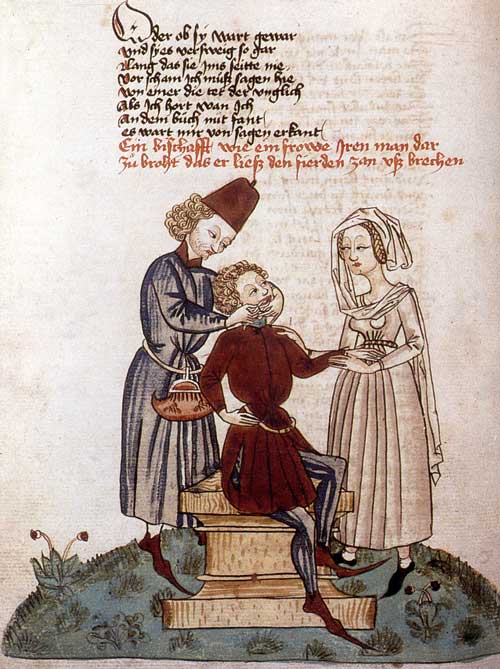 Oder ob sy wart gewar
vnd syes versweig so gar
Lang das sie ims seitte nie
vor scham ich muß sagen hie
von einer die tet der vnglich
Als Ich hort wan Ich
An dem bůch nit fant
es wart mir von sagen erkant
Ein bischafft wie ein frowe Iren man dar
Zů broht das er ließ den fierden zan vß brechen